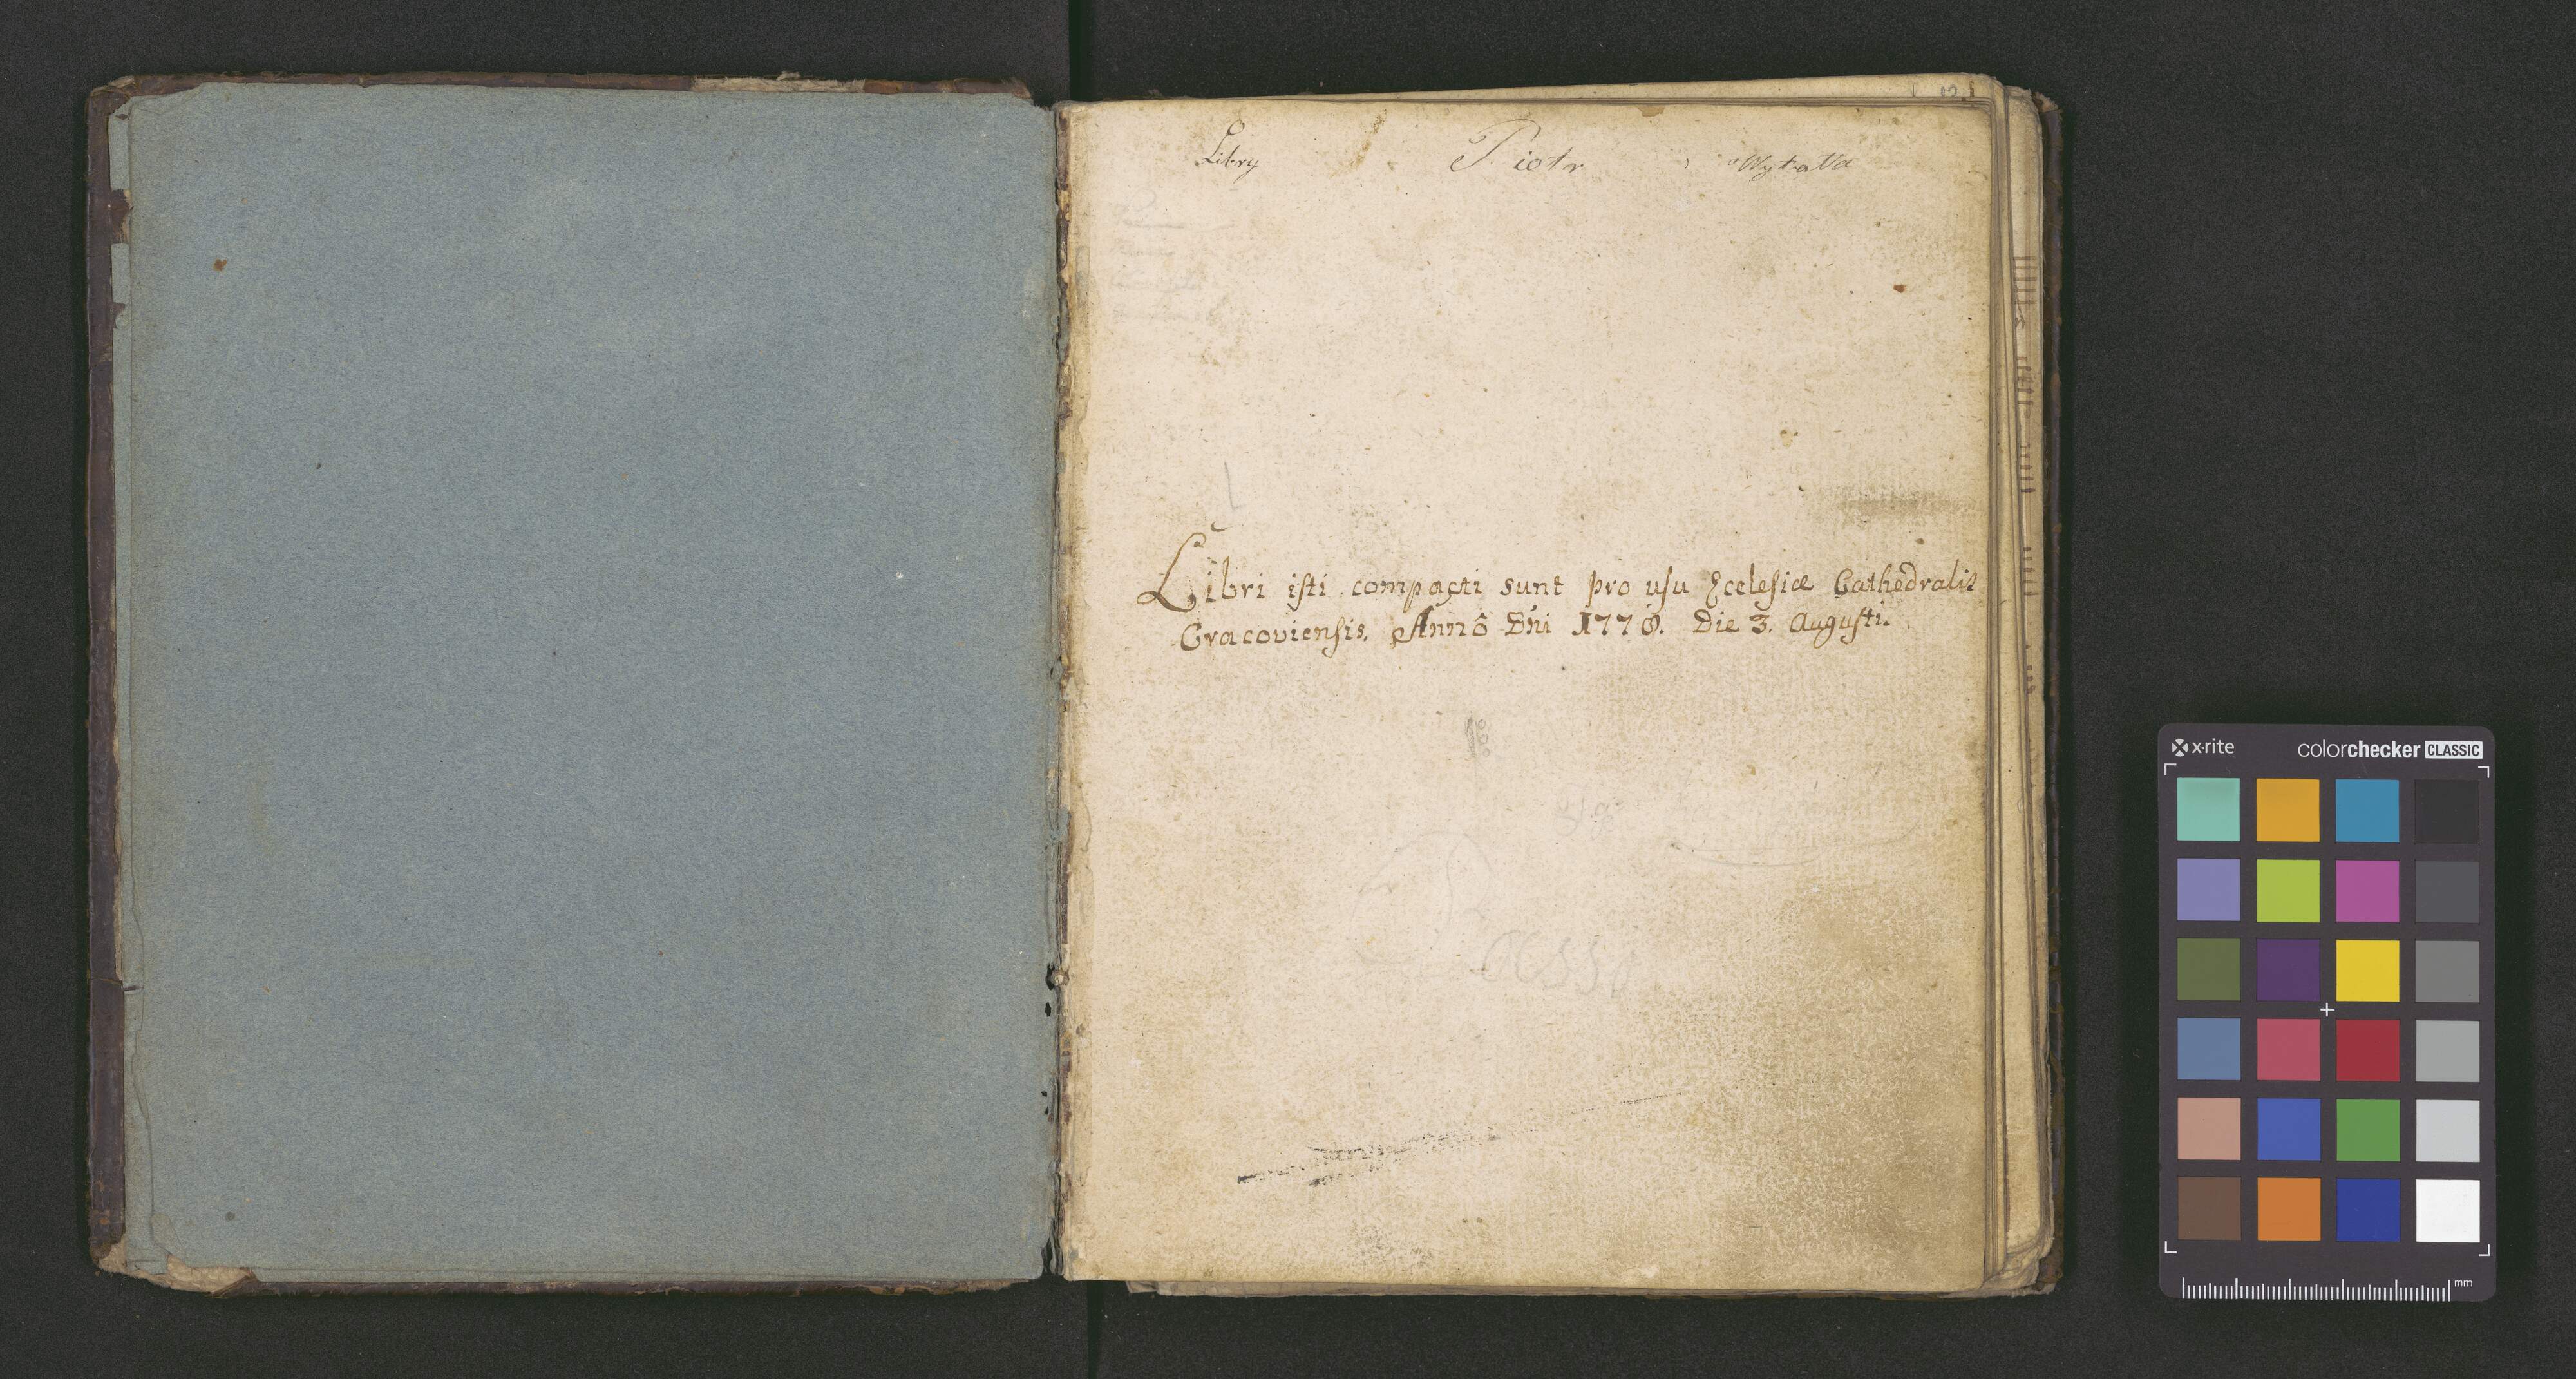 Libry Piotr
Libri isti compacti sunt pro usu Ecclesiæ Cathedralis
Cracoviensis. Annô Dńi 1778. Die 3. Augusti.
Basso
x-rite colorchecker CLASSIC
mm